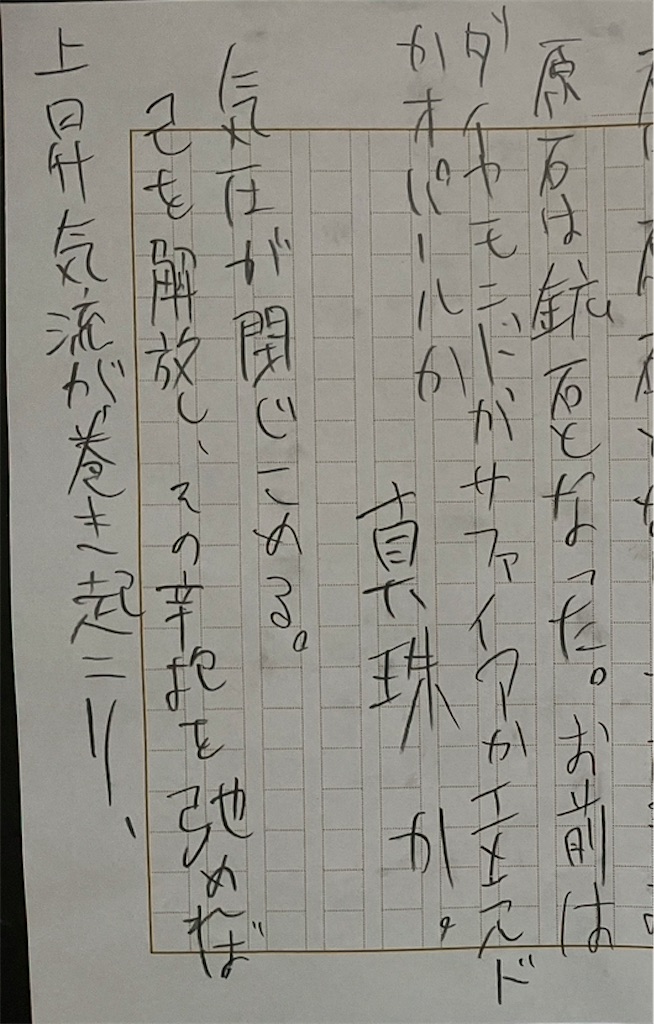 原石は鉱石となった。お前は
ダイヤモンドがサファイアかエメラルド
かオパールか
真珠か。
気圧が閉じこめる。
己を解放し、その辛抱を弛めれば
上昇気流が巻き起こり、